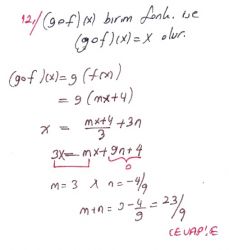 12// (gof)(x) birim fonk. ise
(gof)(x) = x olur.
(gof)(x) = g(f(x))
= g(mx+4)
x = mx+4/3 + 3n
3x = mx + 9n + 4
0
m = 3 ∧ n = -4/9
m+n = 3 - 4/9 = 23/9
CEVAP: E